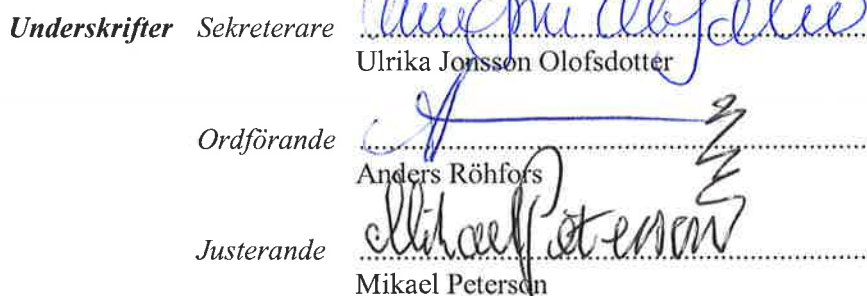 Underskrifter Sekreterare
Ulrika Jonsson Olofsdotter
Ordförande
Anders Röhfors
Mikael Peterson
Justerande
Mikael Peterson